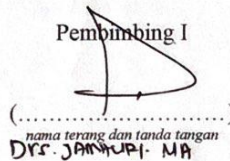 Pembimbing I
(....................................)
nama terang dan tanda tangan
Drs. JAMAURI. MA